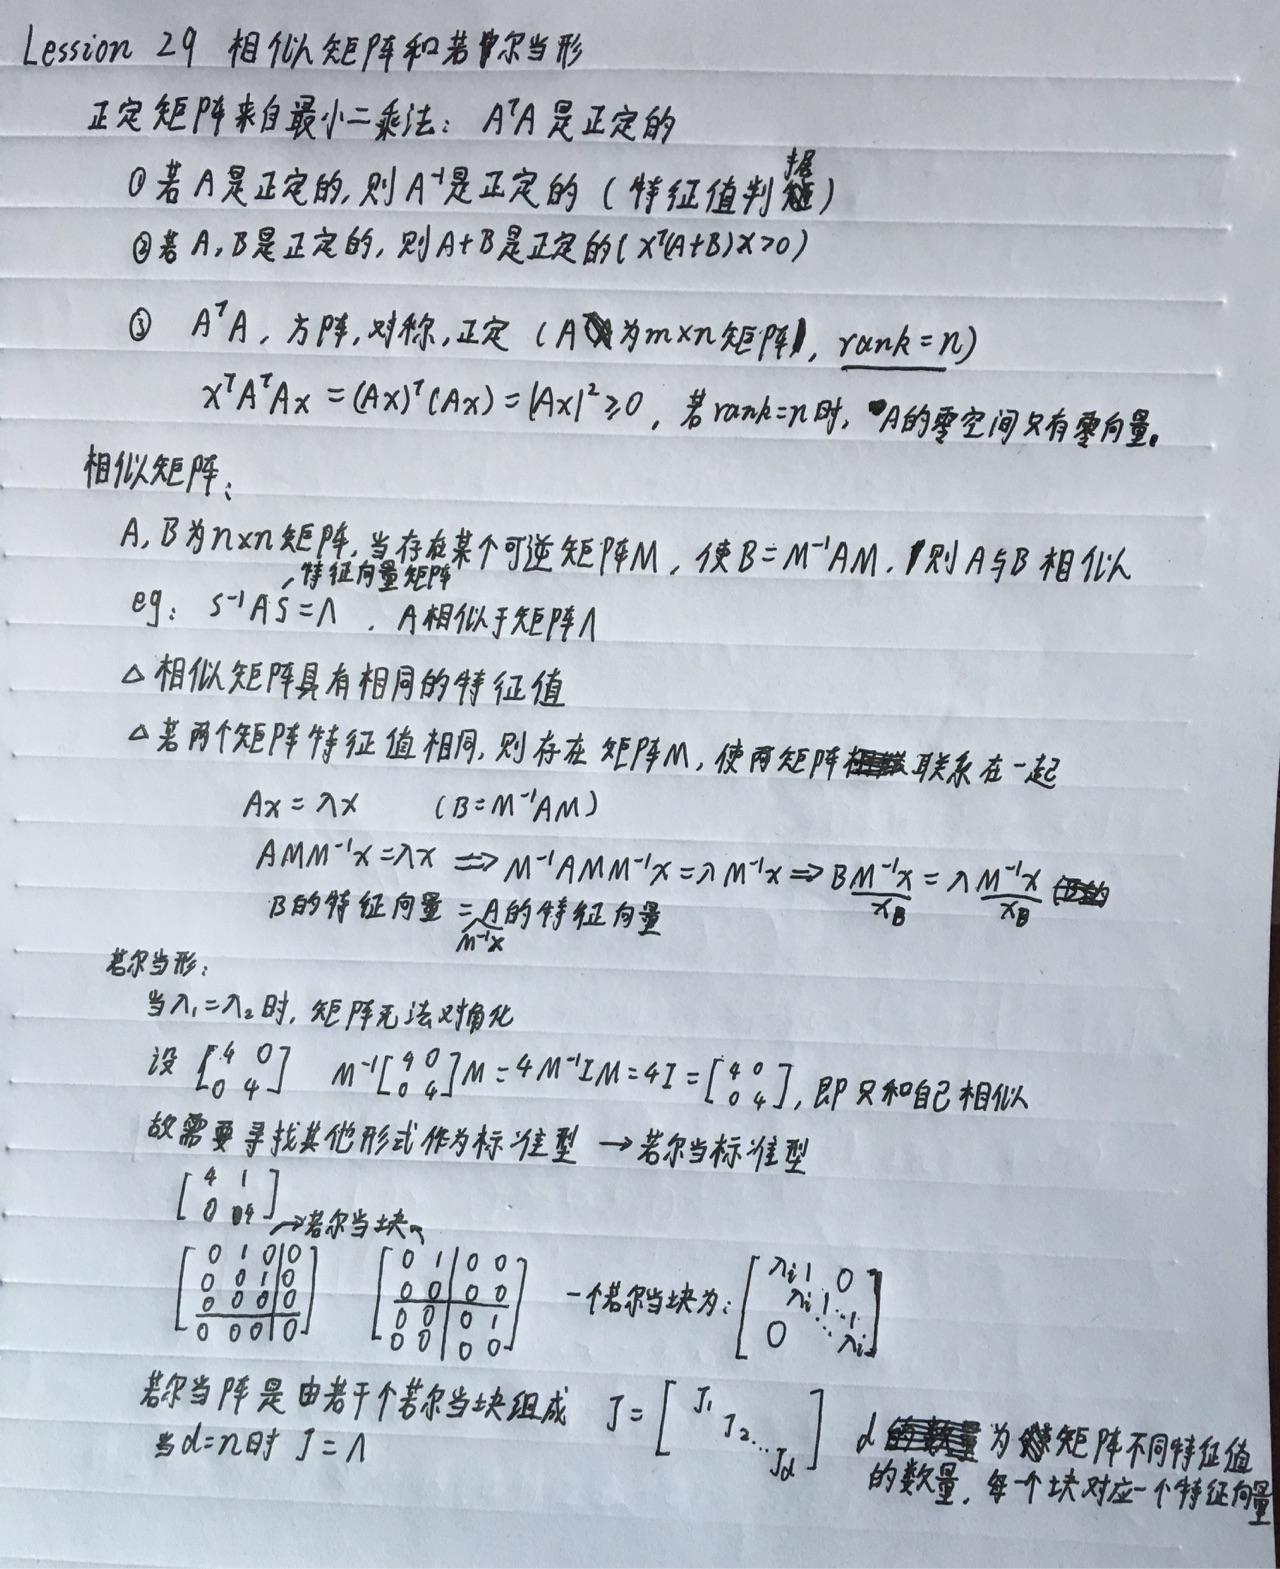 Lession 29 相似矩阵和若尔当形
正定矩阵来自最小二乘法：AᵀA 是正定的
① 若 A 是正定的，则 A⁻¹是正定的（特征值判据）
② 若 A，B 是正定的，则 A+B 是正定的（xᵀ(A+B)x>0）
③ AᵀA，方阵，对称，正定（A 为 m×n 矩阵，rank=n）
xᵀAᵀAx = (Ax)ᵀ(Ax) = |Ax|² ≥0，若 rank=n 时，A的零空间只有零向量。
相似矩阵：
A，B 为 n×n 矩阵，当存在某个可逆矩阵M，使 B=M⁻¹AM，则 A与B 相似
特征向量矩阵
eg： S⁻¹AS=Λ ，A相似于矩阵Λ
△ 相似矩阵具有相同的特征值
△ 若两个矩阵特征值相同，则存在 矩阵M，使两矩阵联系在一起
Ax=λx （B=M⁻¹AM）
AMM⁻¹x=λx ⇒ M⁻¹AMM⁻¹x=λM⁻¹x ⇒ BM⁻¹x = λM⁻¹x
x_B x_B
B的特征向量 = A的特征向量
M⁻¹x
若尔当形：
当λ₁=λ₂时，矩阵无法对角化
设 [4 0; 0 4] M⁻¹[4 0; 0 4]M = 4M⁻¹IM = 4I = [4 0; 0 4]，即只和自己相似
故需要寻找其他形式作为标准型 → 若尔当标准型
[4 1; 0 4]
→若尔当块
[0 1 0 0; 0 0 1 0; 0 0 0 0; 0 0 0 0] [0 1 0 0; 0 0 0 0; 0 0 0 1; 0 0 0 0] 一个若尔当块为：[λᵢ 1 0; λᵢ 1 ⋱ 1; 0 ⋱ λᵢ]
若尔当阵是由若干个若尔当块组成 J=[J₁ J₂ ⋱ J_d] d 为矩阵不同特征值
当 d=n时 J=Λ 的数量，每一个块对应一个特征向量